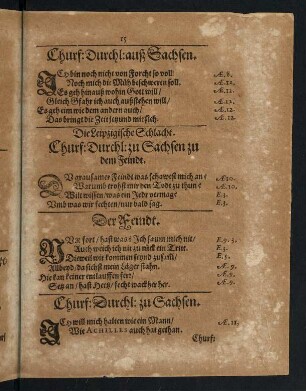 15
Churf: Durchl: auß Sachsen.
ICh bin noch nicht von Forcht so voll/ Æ. 8.
Noch mich die Müh beschweren soll. Æ. 12.
Es geh hinauß wohin Gott will/ Æ. 12.
Gleich Gfahr ich auch außstehen will/ Æ. 12.
Es geh eim wie dem andern auch/ Æ. 12.
Das bringt die Zeit jetzund mit sich.
Die Leipzigische Schlacht.
Churf: Durchl: zu Sachsen zu
dem Feindt.
DU grausamer Feindt was schawest mich an Æ. 10.
Warumb trohst mir den Todt zu thun Æ. 10.
Wilt wissen/ was ein Jeder vermag E. 3.
Vmb was wir fechten/ nur bald sag. E. 3.
Der Feindt.
NUR fort/ hast was: Ich saum mich nit/ E. 9.
Auch weich ich nit zu rück ein Tritt. E. 3.
Dieweil wir kommen seynd
Allherd/ da sichst mein Läger stahn. Æ. 9.
Hie kan keiner entlauffen frey/ Æ. 9.
Setz an/ hast Hertz/ secht wack her hat. Æ. 9.
Churf: Durchl: zu Sachsen.
ICh will mich halten wie ein Mann/ Æ. 11.
Wie ACHILLES auch hat gethan.
Churf: